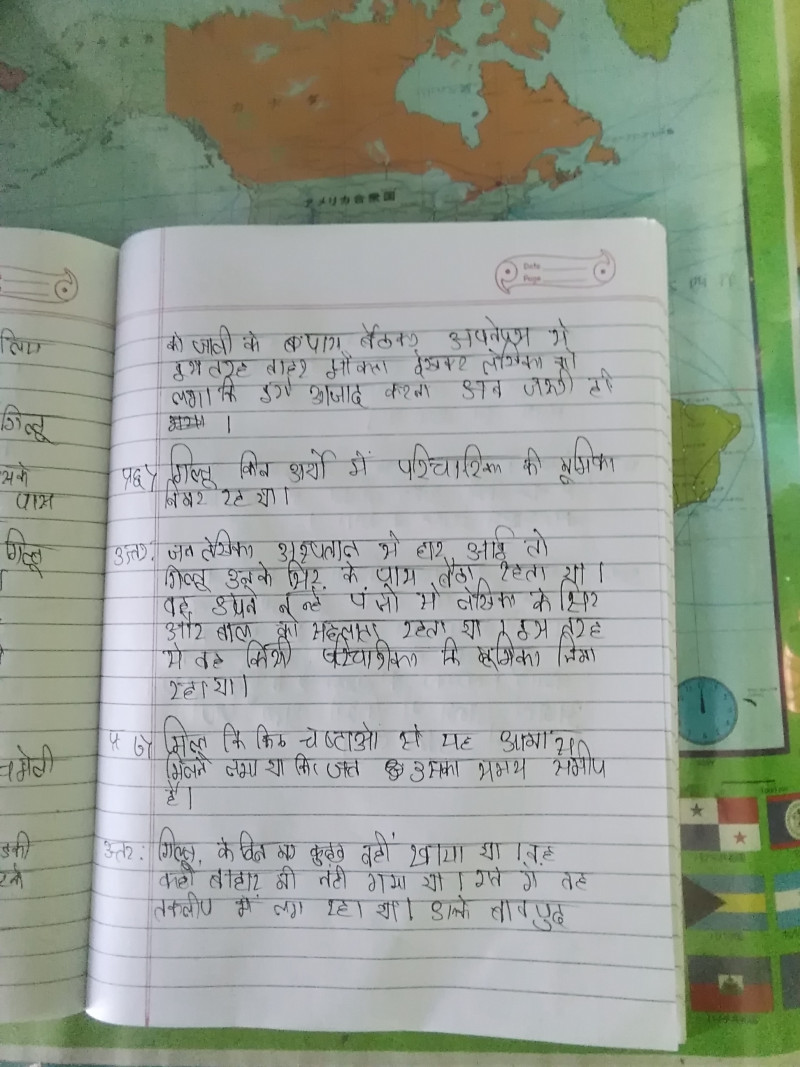 アメリカ合衆国
Date
Page
की जाली के पास बैठकर अपनेपन से
इस तरह बाहर झाँकता देखकर लेखिका को
लगा कि इसे आजाद करना अब जरुरी हो
गया ।
प्र६) गिल्लू किन अर्थो में परिचारिका की भूमिका
निभा रह था।
उत्तर: जब लेखिका अस्पताल से हार आई तो
गिल्लू उनके सिर के पास बैठा रहता था ।
वह अपने नन्हे पंजो से लेखिका के सिर
और बाल को सहलाता रहता था । इस तरह
से वह किसी परिचारिका कि भूमिका निभा
रहा था।
प्र ७) गिल्लू कि किन चेष्टाओ से यह आभास
मिलने लगा था कि अब उसका समय समीप
है।
उत्तर: गिल्लू, के दिन भर कुछ नहीं खाया था । वह
कही बाहार भी नही गया था । रात में वह
तकलीप में लग रहा था। इसके बावजुद
लिया
गिल्लू
पास
गिल्लू
चमेली